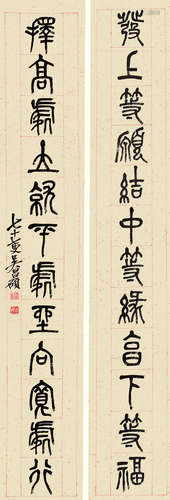 發上等願結中等緣享下等福
擇高處立就平處坐向寬處行
七十叟吳昌碩